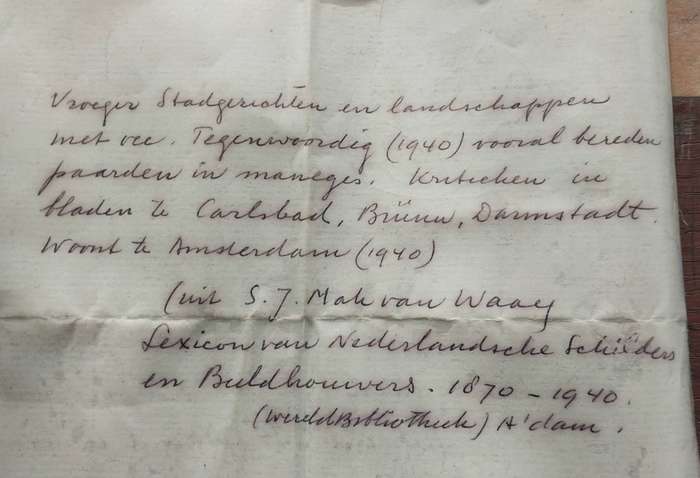 Vroeger Stadgezichten en landschappen
met vee. Tegenwoordig (1940) vooral bereden
paarden in maneges. Kritieken in
bladen te Carlsbad, Brünn, Darmstadt.
Woont te Amsterdam (1940)
(uit S. J. Mak van Waay
Lexicon van Nederlandsche Schilders
en Beeldhouwers. 1870 - 1940.
(WereldBibliotheek) A'dam.